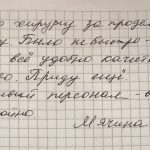 хирургу за продел
Было не быстро -
всё удобно качест
Приду ещё.
персонал -
Мячина